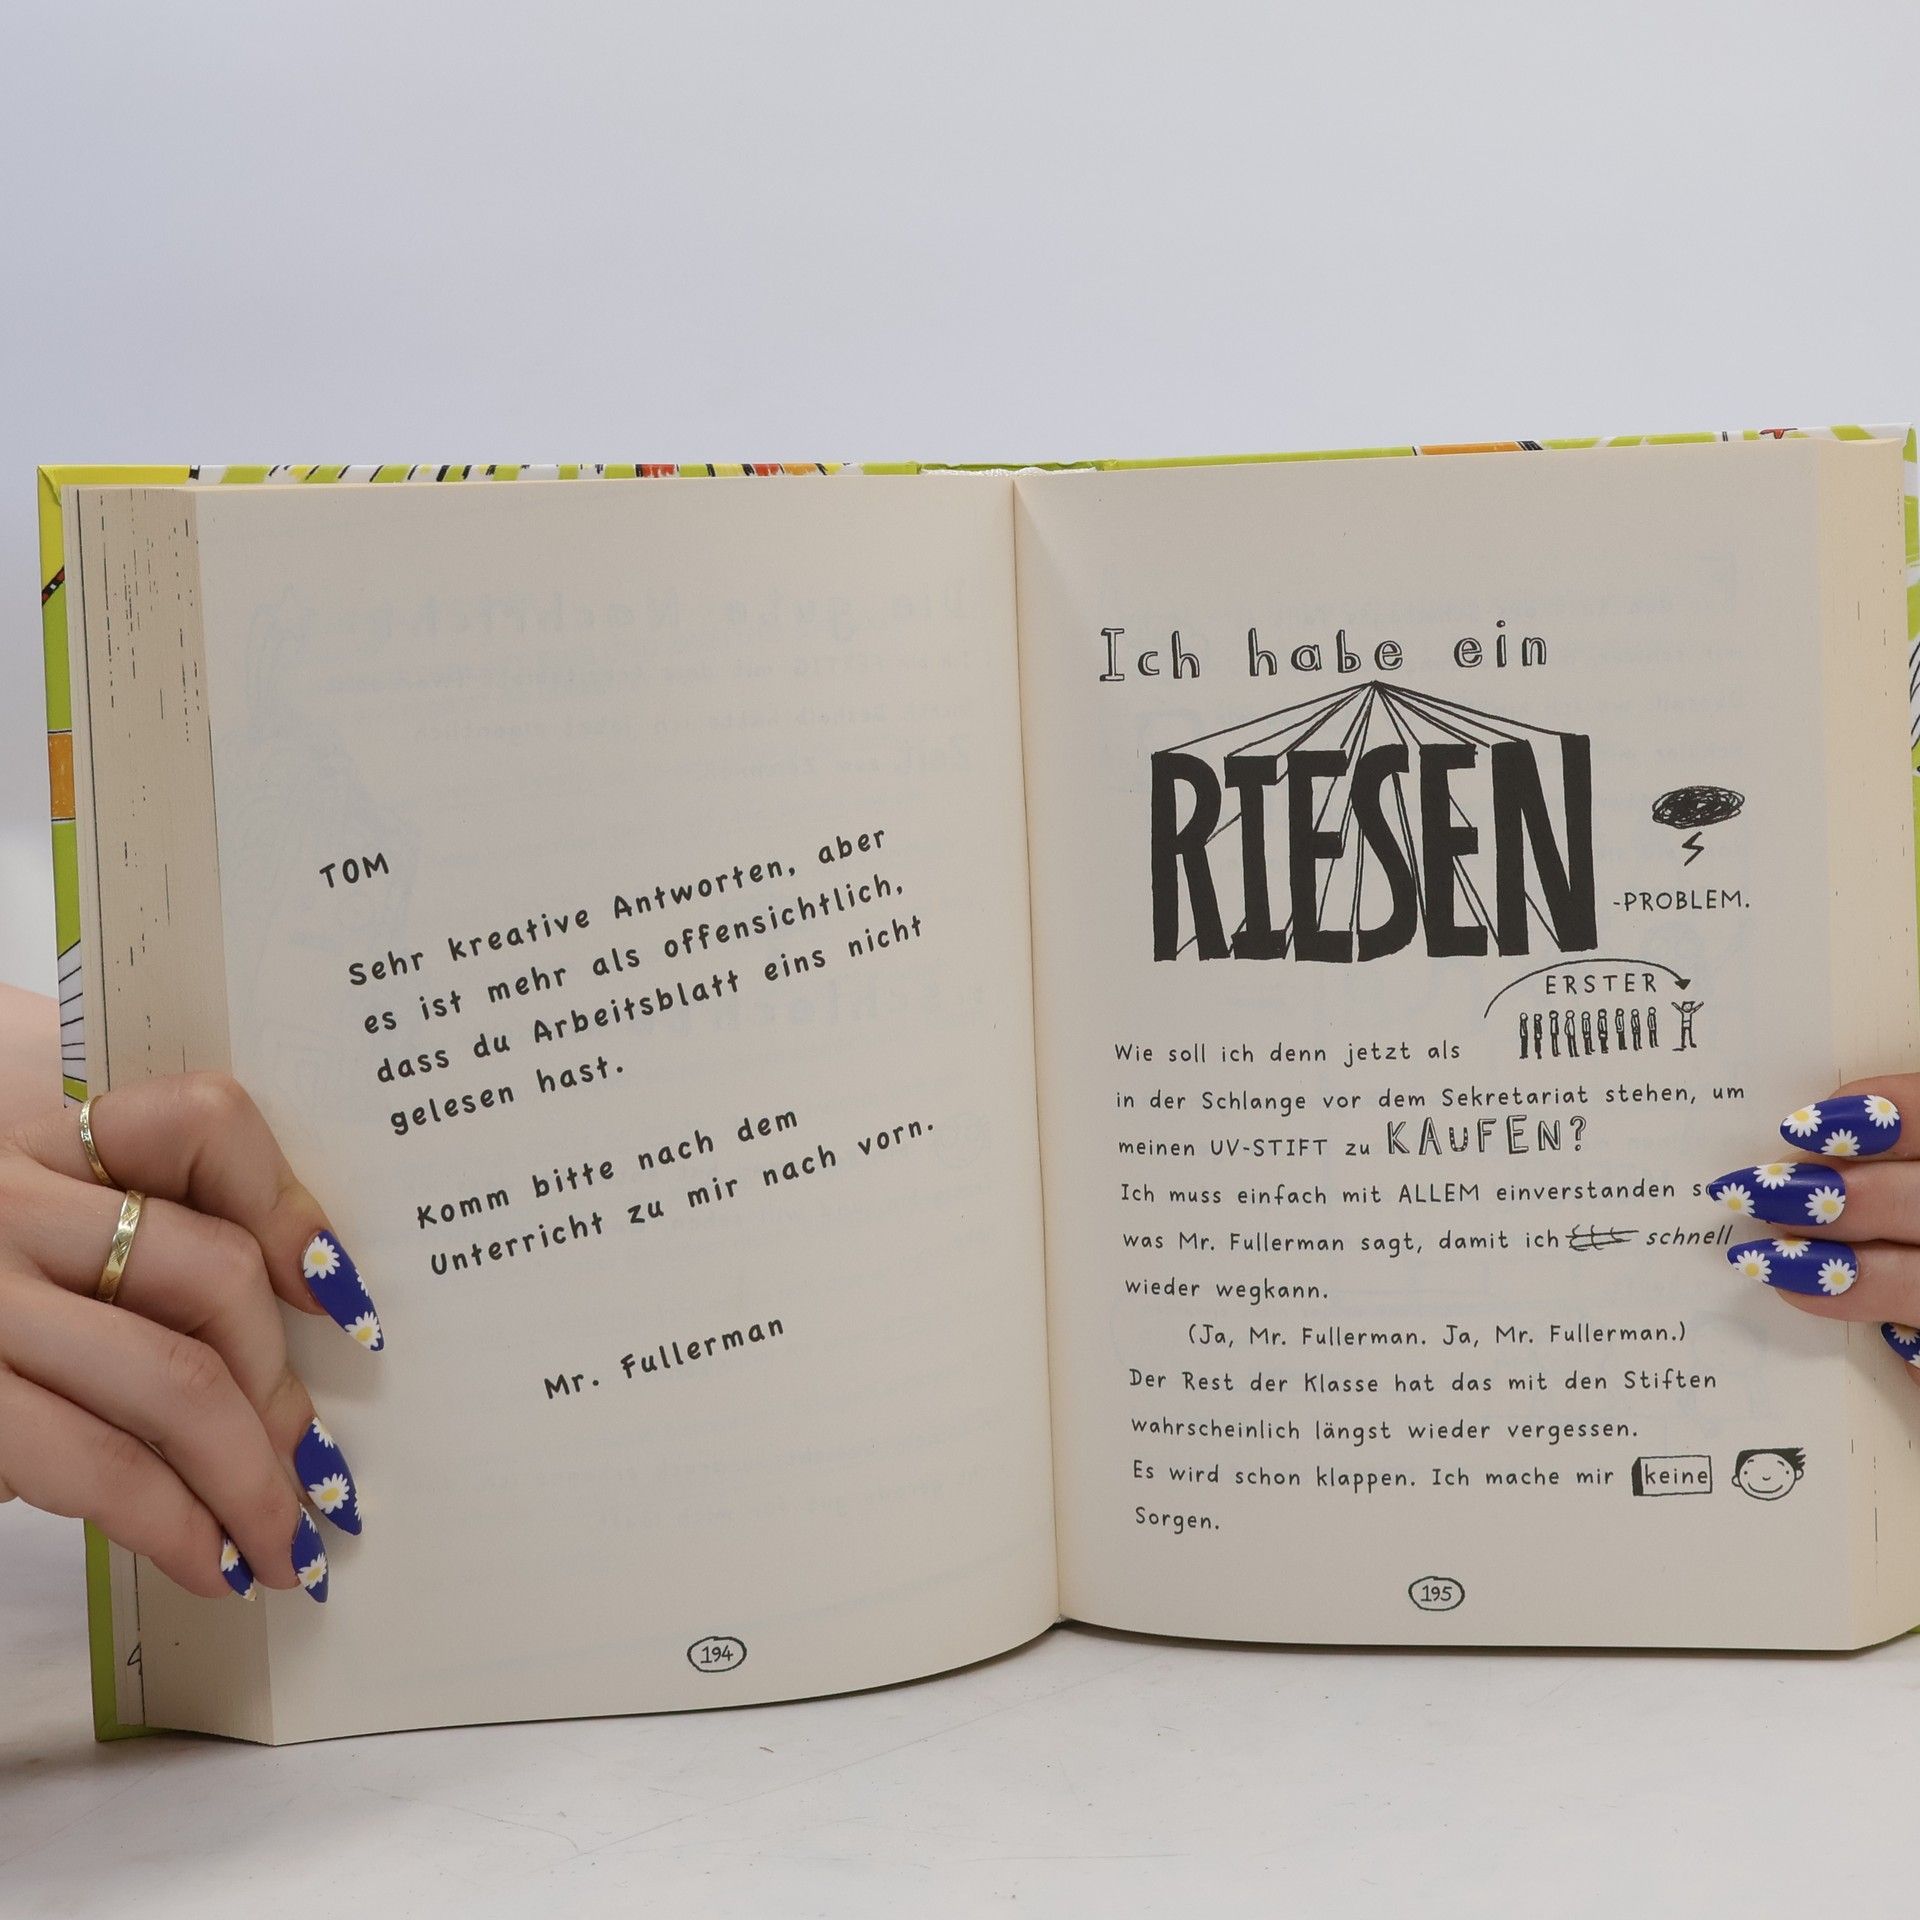 TOM
Sehr kreative Antworten, aber
es ist mehr als offensichtlich,
dass du Arbeitsblatt eins nicht
gelesen hast.
Komm bitte nach dem
Unterricht zu mir nach vorn.
Mr. Fullerman
194
Ich habe ein
RIESEN
-PROBLEM.
ERSTER
Wie soll ich denn jetzt als
in der Schlange vor dem Sekretariat stehen, um
meinen UV-STIFT zu KAUFEN?
Ich muss einfach mit ALLEM einverstanden
was Mr. Fullerman sagt, damit ich schnell
wieder wegkann.
(Ja, Mr. Fullerman. Ja, Mr. Fullerman.)
Der Rest der Klasse hat das mit den Stiften
wahrscheinlich längst wieder vergessen.
Es wird schon klappen. Ich mache mir keine
Sorgen.
195